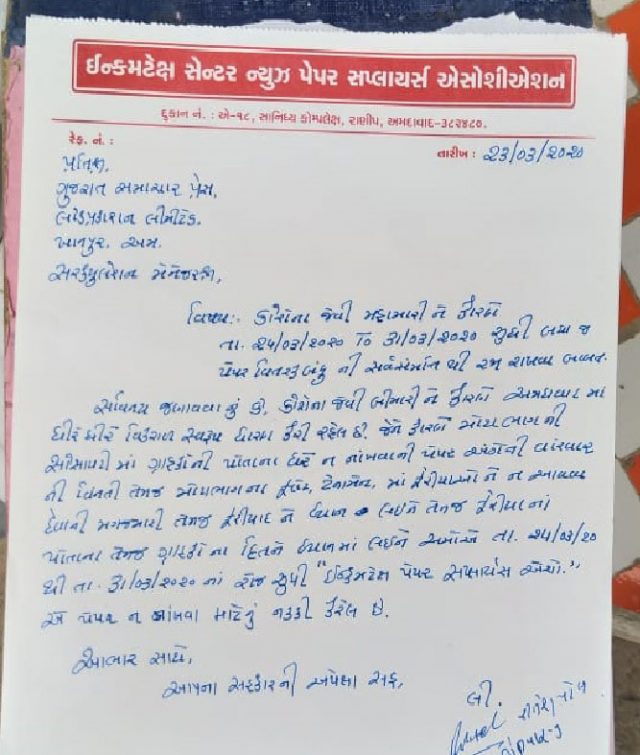 ઈન્કમટેક્ષ સેન્ટર ન્યુઝ પેપર સપ્લાયર્સ એસોશીએશન
દુકાન નં. : એ-૧૮, સાનિધ્ય કોમ્પલેક્ષ, રાણીપ, અમદાવાદ-૩૮૨૪૮૦.
રેફ. નં. :
તારીખ : ૨૩/૦૩/૨૦૨૦
પ્રતિશ્રી,
ગુજરાત સમાચાર પ્રેસ,
લોકપ્રકાશન લીમીટેડ.
ખાનપુર, અમ.
સરક્યુલેશન મેનેજરશ્રી,
વિષય :- કોરોના જેવી મહામારી ને કારણે
તા. ૨૪/૦૩/૨૦૨૦ TO ૩૧/૦૩/૨૦૨૦ સુધી બધા જ
પેપર વિતરણ બંધુ ની સર્વસંમતિ થી રજા રાખવા બાબત.
સવિનય જણાવવાનું કે, કોરોના જેવી બીમારી ને કારણે અમદાવાદ માં
ધીરે ધીરે વિકરાળ સ્વરૂપ ધારણ કરી રહેલ છે. જેને કારણે મોટા ભાગની
સોસાયટી માં ગ્રાહકોની પોતાના ઘરે ન નાંખવાની પેપર અંગેની વારંવાર
ની વિનંતી તેમજ મોટાભાગના ફ્લેટ, ટેનામેન્ટ, માં ફેરીયાઓ ને ન આવવા
દેવાની મગજમારી તેમજ ફરીયાદ ને ધ્યાન લઈને તેમજ ફેરીયાનાં
પોતાના તેમજ ગ્રાહકો ના હિતને ધ્યાનમાં લઈને અમોએ તા. ૨૪/૦૩/૨૦
થી તા. ૩૧/૦૩/૨૦૨૦ નાં રોજ સુધી "ઈન્કમટેક્ષ પેપર સપ્લાયર્સ એસો."
એ પેપર ન નાંખવા માટેનું નક્કી કરેલ છે.
આભાર સાથે,
આપના સહકારની અપેક્ષા સહ,
લી.